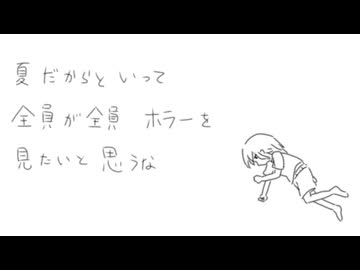 夏だからといって
全員が全員 ホラーを
見たいと思うな